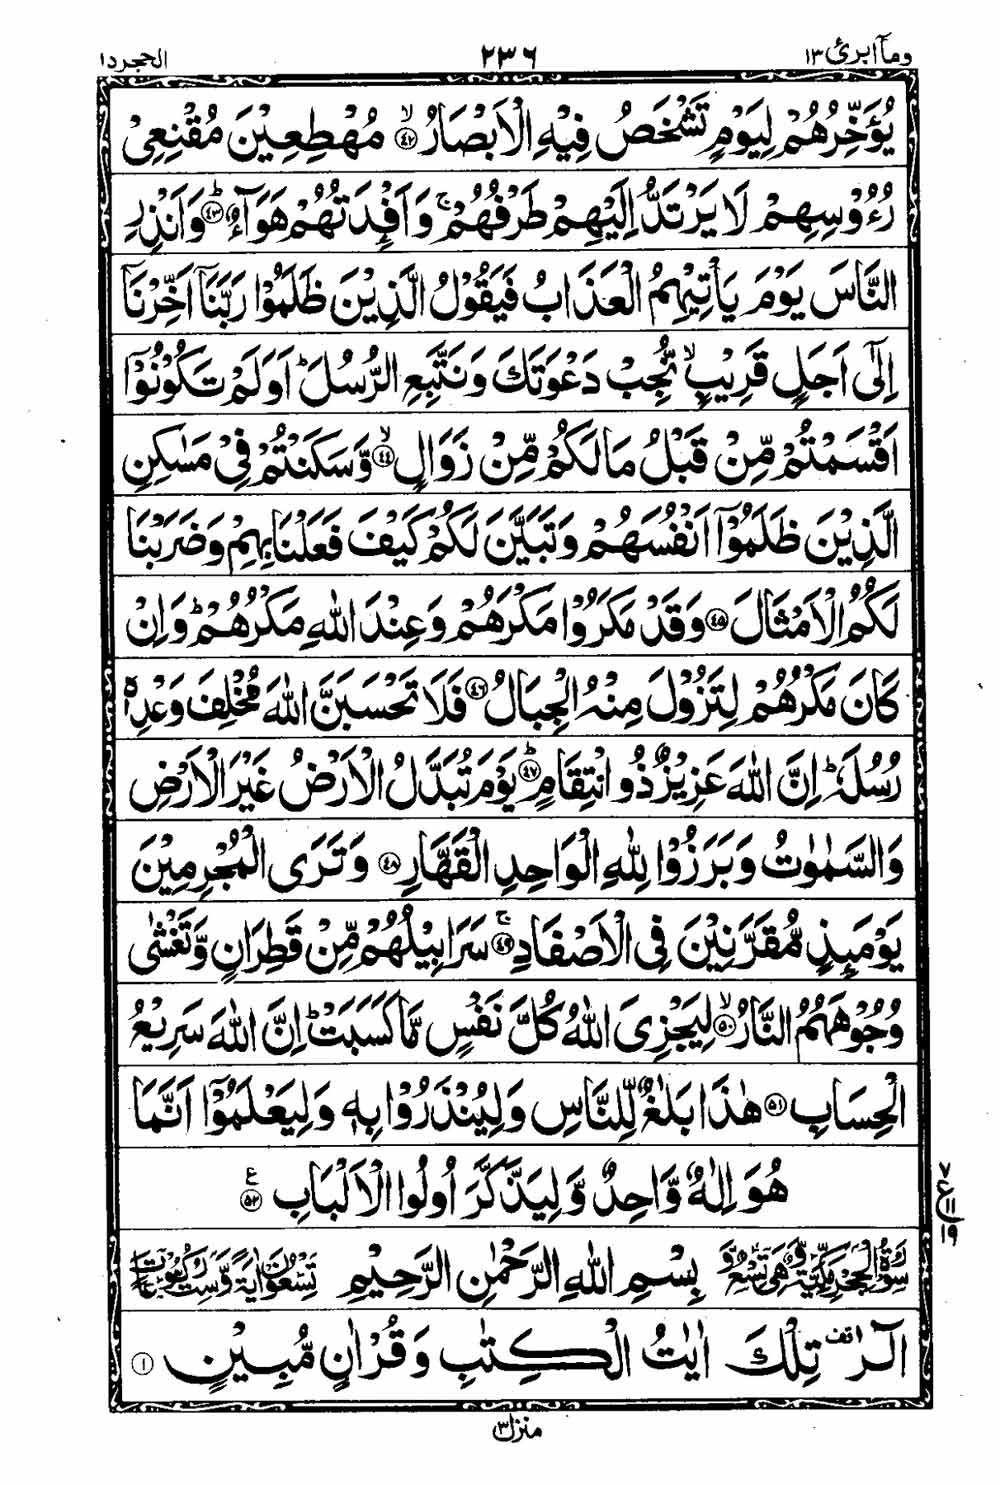 وماۤ ابرئ ١٣
٢٣٦
الحجر ١٥
يُؤَخِّرُهُمْ لِيَوْمٍ تَشْخَصُ فِيْهِ الْاَبْصَارُ ۙ﴿٤٢﴾ مُهْطِعِيْنَ مُقْنِعِيْ
رُءُوْسِهِمْ لَا يَرْتَدُّ اِلَيْهِمْ طَرْفُهُمْ ۚ وَاَفْـِٕدَتُهُمْ هَوَآءٌ ؕ﴿٤٣﴾ وَاَنْذِرِ
النَّاسَ يَوْمَ يَاْتِيْهِمُ الْعَذَابُ فَيَقُوْلُ الَّذِيْنَ ظَلَمُوْا رَبَّنَاۤ اَخِّرْنَاۤ
اِلٰۤى اَجَلٍ قَرِيْبٍ ۙ نُّجِبْ دَعْوَتَكَ وَنَتَّبِعِ الرُّسُلَ ؕ اَوَلَمْ تَكُوْنُوْۤا
اَقْسَمْتُمْ مِّنْ قَبْلُ مَا لَكُمْ مِّنْ زَوَالٍ ۙ﴿٤٤﴾ وَّسَكَنْتُمْ فِيْ مَسٰكِنِ
الَّذِيْنَ ظَلَمُوْۤا اَنْفُسَهُمْ وَتَبَيَّنَ لَكُمْ كَيْفَ فَعَلْنَا بِهِمْ وَضَرَبْنَا
لَكُمُ الْاَمْثَالَ ﴿٤٥﴾ وَقَدْ مَكَرُوْا مَكْرَهُمْ وَعِنْدَ اللّٰهِ مَكْرُهُمْ ؕ وَاِنْ
كَانَ مَكْرُهُمْ لِتَزُوْلَ مِنْهُ الْجِبَالُ ﴿٤٦﴾ فَلَا تَحْسَبَنَّ اللّٰهَ مُخْلِفَ وَعْدِهٖ
رُسُلَهٗ ؕ اِنَّ اللّٰهَ عَزِيْزٌ ذُو انْتِقَامٍ ؕ﴿٤٧﴾ يَوْمَ تُبَدَّلُ الْاَرْضُ غَيْرَ الْاَرْضِ
وَالسَّمٰوٰتُ وَبَرَزُوْا لِلّٰهِ الْوَاحِدِ الْقَهَّارِ ﴿٤٨﴾ وَتَرَى الْمُجْرِمِيْنَ
يَوْمَىِٕذٍ مُّقَرَّنِيْنَ فِي الْاَصْفَادِ ۚ﴿٤٩﴾ سَرَابِيْلُهُمْ مِّنْ قَطِرَانٍ وَّتَغْشٰى
وُجُوْهَهُمُ النَّارُ ۙ﴿٥٠﴾ لِيَجْزِيَ اللّٰهُ كُلَّ نَفْسٍ مَّا كَسَبَتْ ؕ اِنَّ اللّٰهَ سَرِيْعُ
الْحِسَابِ ﴿٥١﴾ هٰذَا بَلٰغٌ لِّلنَّاسِ وَلِيُنْذَرُوْا بِهٖ وَلِيَعْلَمُوْۤا اَنَّمَا
هُوَ اِلٰهٌ وَّاحِدٌ وَّلِيَذَّكَّرَ اُولُوا الْاَلْبَابِ ﴿٥٢﴾ ع
ع ٧ ١١ ١٩
سُوْرَةُ الْحِجْرِ مَكِّيَّةٌ وَّهِيَ تِسْعٌ وَّ بِسْمِ اللّٰهِ الرَّحْمٰنِ الرَّحِيْمِ تِسْعُوْنَ اٰيَةً وَّسِتُّ رُكُوْعَاتٍ
الٓرٰ قف تِلْكَ اٰيٰتُ الْكِتٰبِ وَقُرْاٰنٍ مُّبِيْنٍ ﴿١﴾
منزل ٣